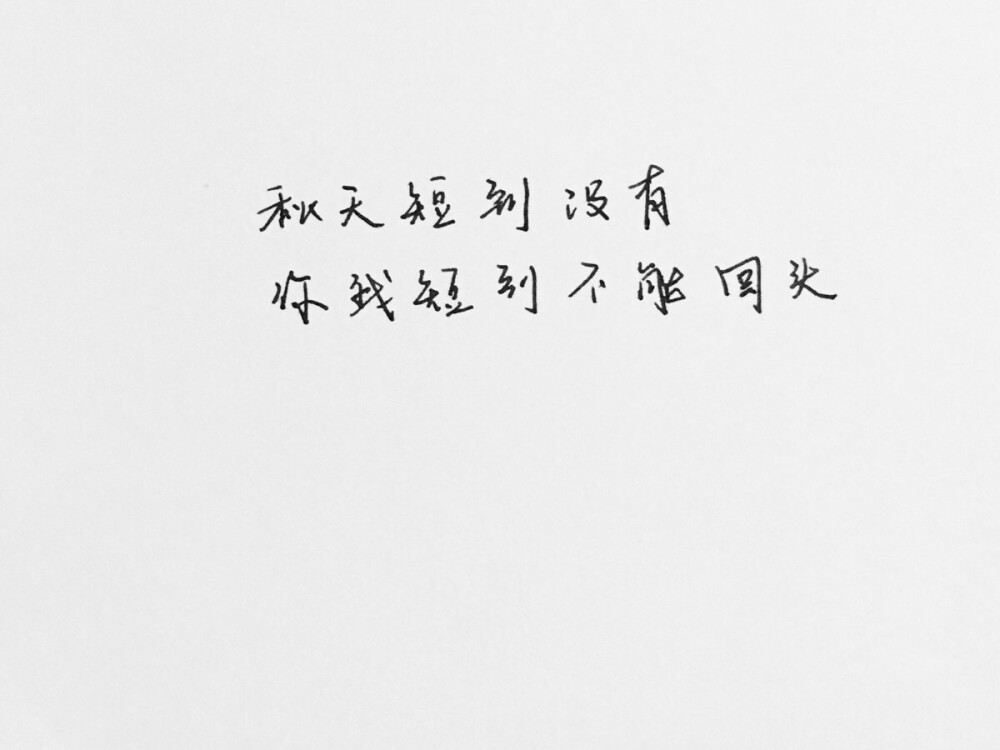 秋天短到没有
你我短到不能回头